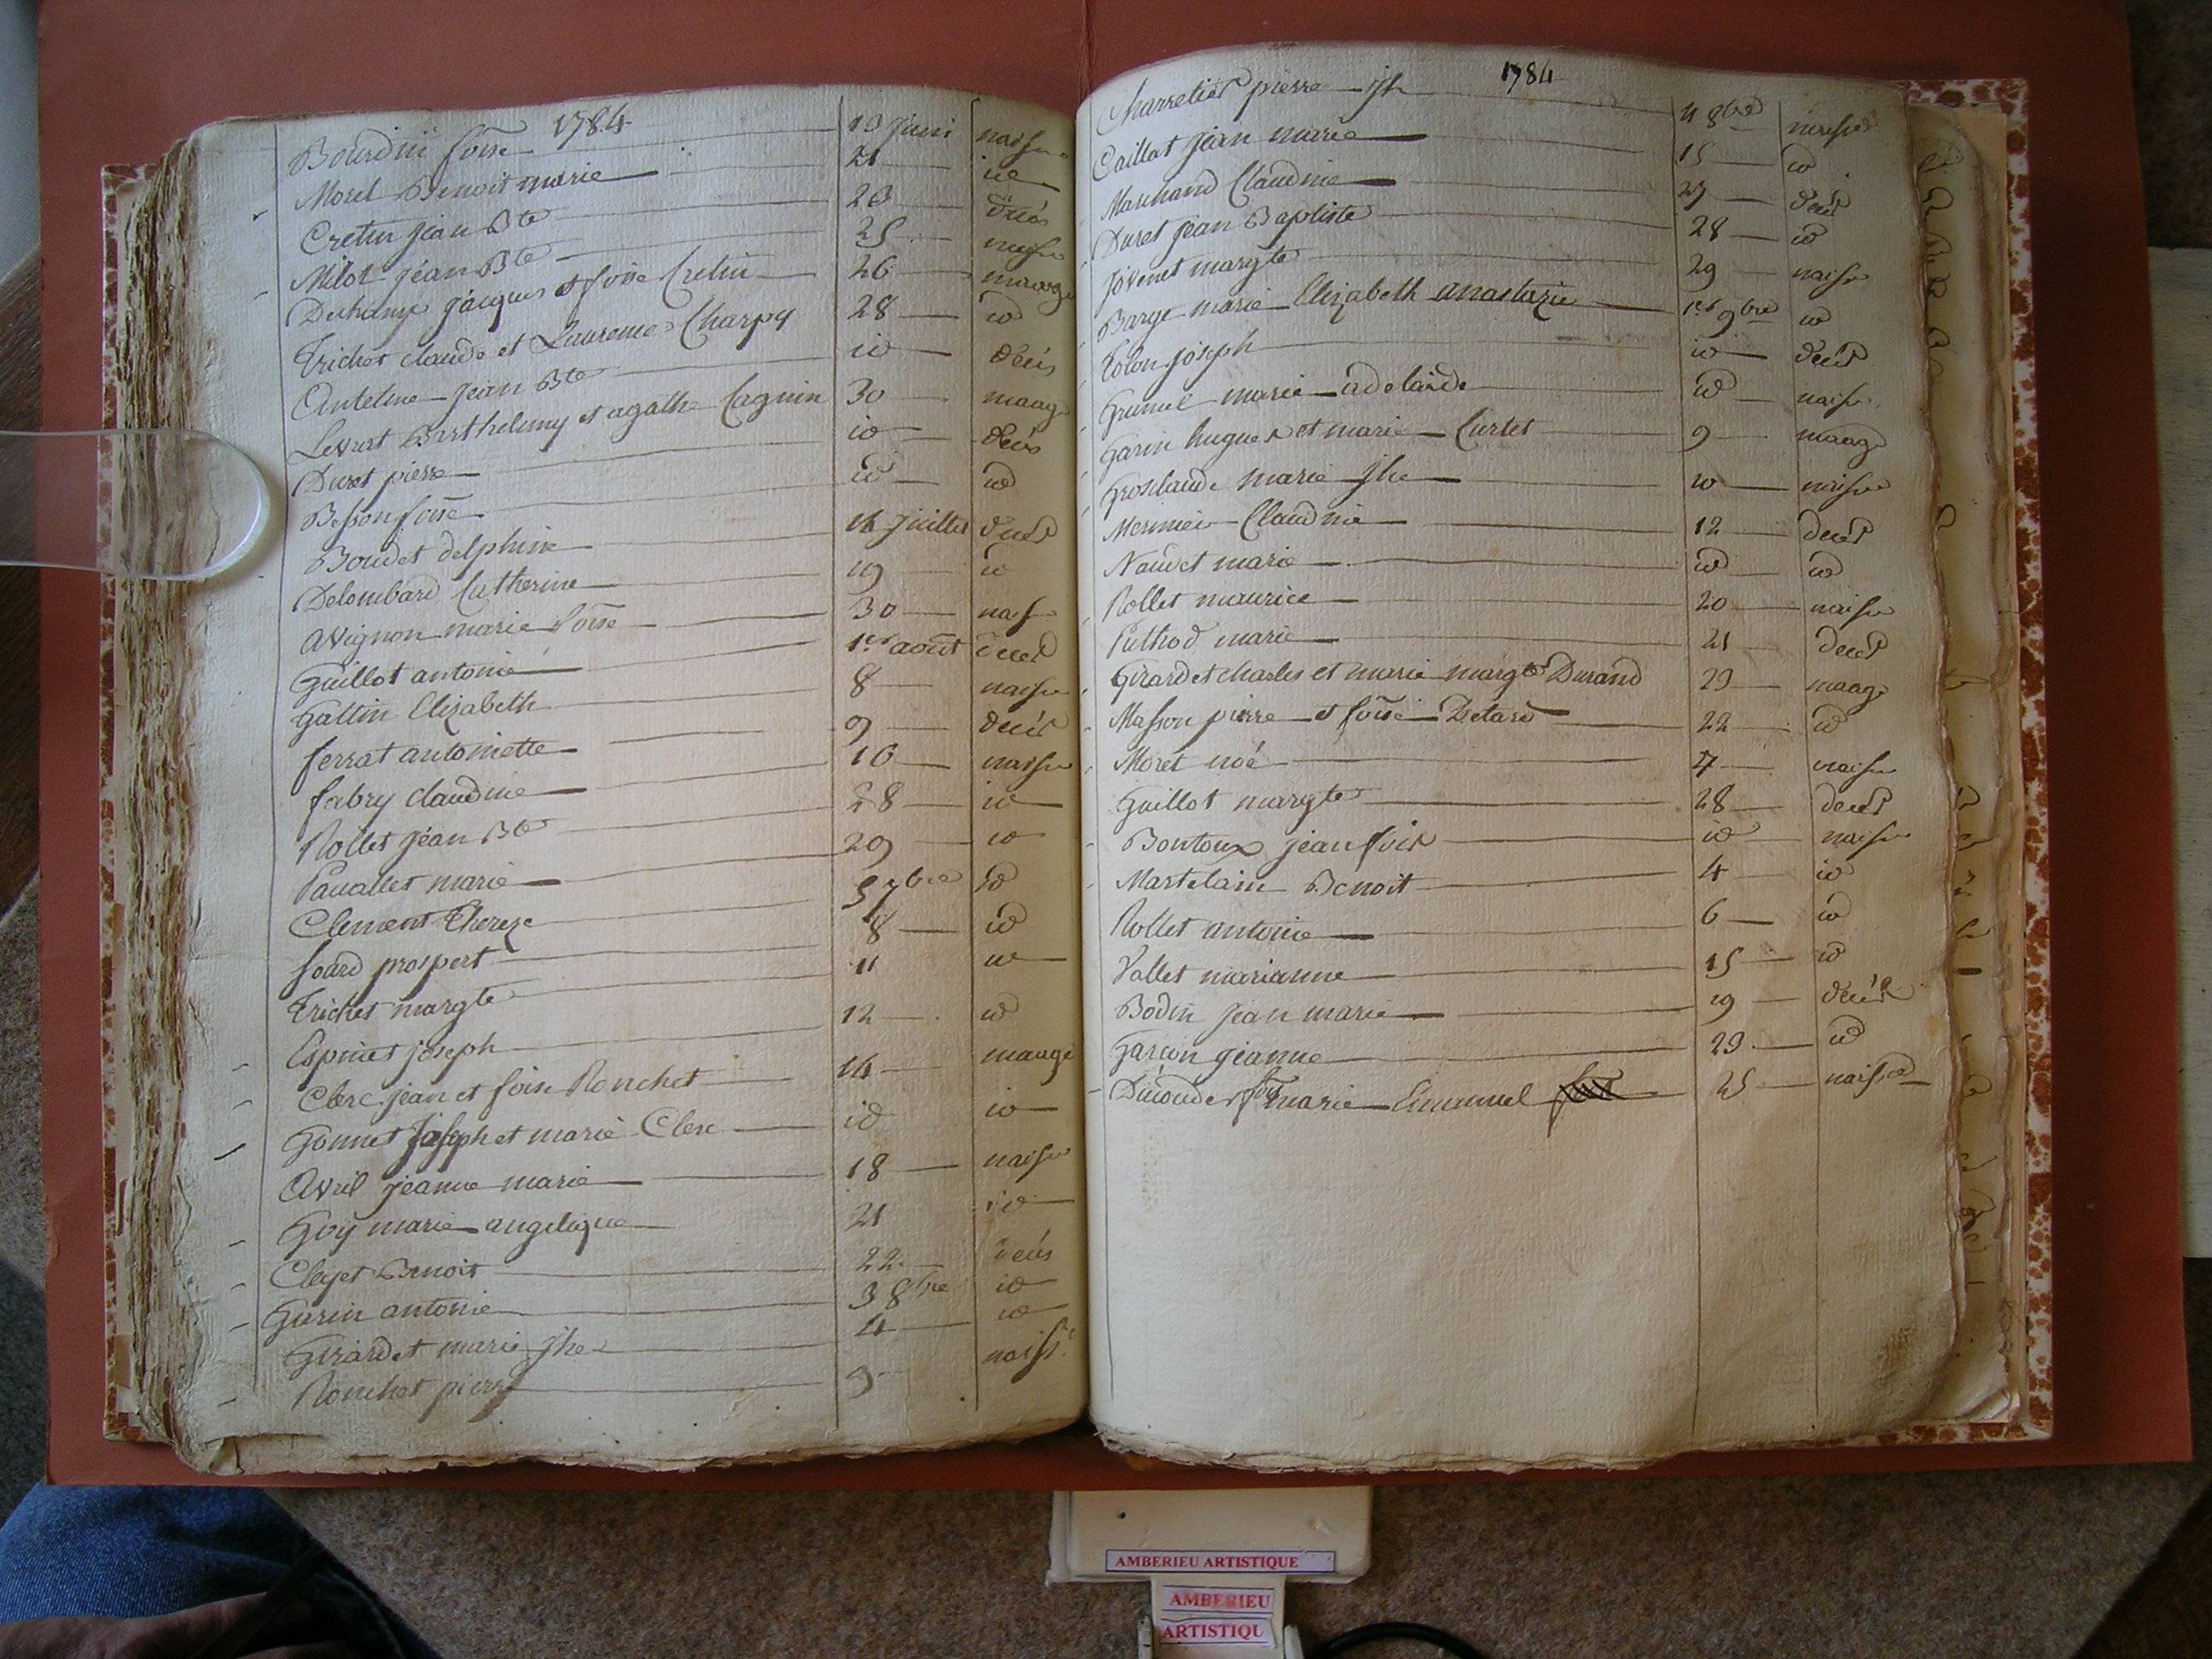 1784
Bourdin foise 19 juin naisce
Morel Benoit marie 21 id
Cretin jean Bte 23 décès
Milot jean Bte 25 naisce
jacques et foise Cretin 26 mariage
Trichet claude et Laurence Charpy 28 id
Antelme jean Bte id décès
Levrat Barthelemy et agathe Cagnin 30 maage
Duret pierre id décès
Besson foise id id
Boudet delphine 14 juillet décès
Delombard Catherine 19 id
Avignon marie foise 30 naisce
Guillot antoine 1er août décès
Gattin Elizabeth 8 naisce
ferrat antoinette 9 décès
fabry claudine 16 naisce
Rollet jean Bte 28 id
Pauallet marie 29 id
Clement Thereze 5 7bre id
foard prospert 8 id
Trichet margte 11 id
Espinet joseph 12 id
Clerc jean et foise Ronchet 14 maage
Gonnet joseph et marie Clerc id id
Avril jeanne marie 18 naisce
Goy marie angelique 21 id
Cleyet Benoit 22 décès
Guerin antoine 3 8bre id
Girardet marie jhe 4 id
Ronchet pierre 9 naisce
1784
Charrelier pierre jh 11 8bre naisce
Caillat jean marie 15 id
Marchand Claudine 27 décès
Duret jean Baptiste 28 id
Jovenet margte 29 naisce
Barge marie Elizabeth anastazie 1er 9bre id
Tolon joseph id décès
Grumel marie adelaide id naisce
Garin hugues et marie Curtet 9 maage
Grosclaude marie jhe 10 naisce
Mermier Claudine 12 décès
Naudet marie id id
Rollet maurice 20 naisce
Puthod marie 21 décès
Girardet charles et marie margte Durand 23 maage
Masson pierre et foise Detard 22 id
Moret noé 7 naisce
Guillot margte 28 décès
Bontoux jean fois id naisce
Martelain Benoit 4 id
Rollet antoine 6 id
Vallet marianne 15 id
Bodin jean marie 19 décès
Garçon jeanne 23 id
Dieoude fois marie Emanuel 25 naisce
AMBERIEU ARTISTIQUE
AMBERIEU
ARTISTIQU